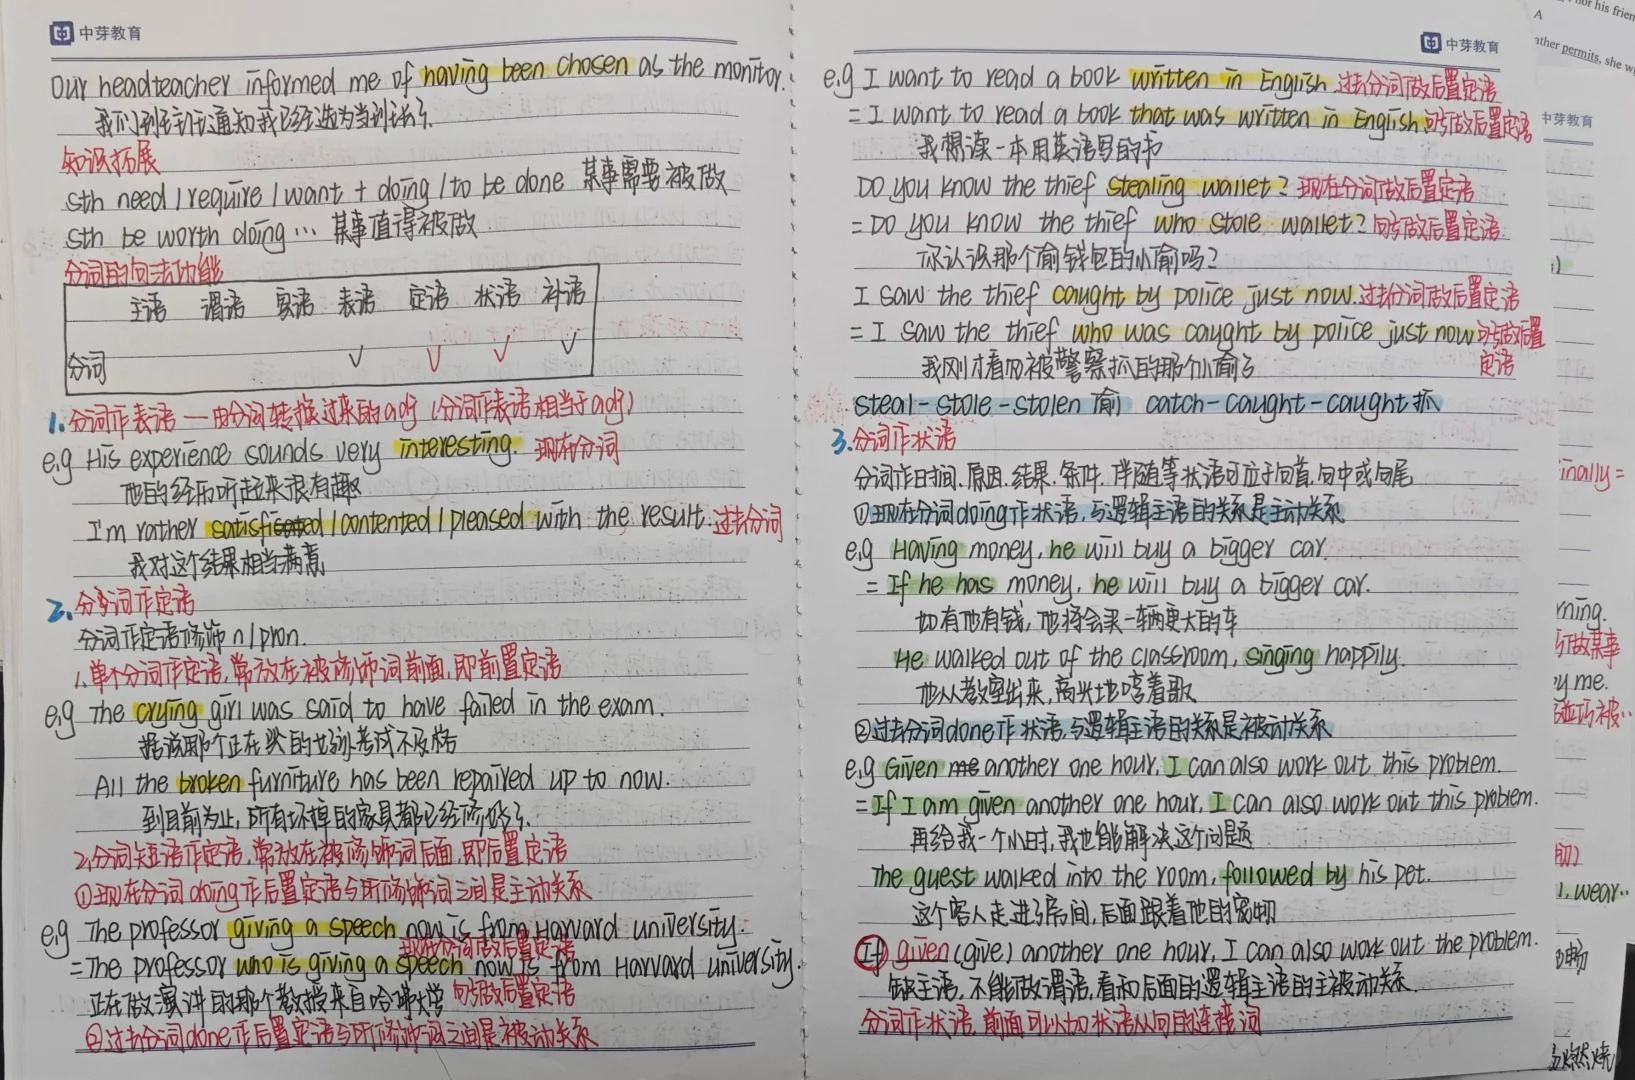 中芽教育
Our headteacher informed me of having been chosen as the monitor.
知识拓展
sth need / require / want + doing / to be done 某事需要被做
sth be worth doing … 某事值得被做
分词的句法功能
主语 谓语 宾语 表语 定语 状语 补语
分词 ✓ ✓ ✓ ✓
1. 分词作表语 — 由分词转换过来的adj (分词作表语相当于adj)
e.g His experience sounds very interesting. 现在分词
他的经历听起来很有趣
I'm rather satisfied / contented / pleased with the result. 过去分词
我对这个结果相当满意
2. 分词作定语
分词作定语修饰 n / pron.
1. 单个分词作定语, 常放在被修饰词前面, 即前置定语
e.g The crying girl was said to have failed in the exam.
据说那个正在哭的女孩考试不及格
All the broken furniture has been repaired up to now.
到目前为止, 所有坏掉的家具都已经修好了.
2. 分词短语作定语, 常放在被修饰词后面, 即后置定语
①现在分词doing作后置定语与所修饰词之间是主动关系
e.g The professor giving a speech now is from Harvard university.
现在分词做后置定语
= The professor who is giving a speech now is from Harvard university.
正在做演讲的那个教授来自哈佛大学 句子做后置定语
②过去分词done作后置定语与所修饰词之间是被动关系
中芽教育
e.g I want to read a book written in English. 过去分词做后置定语
= I want to read a book that was written in English. 句子做后置定语
我想读一本用英语写的书
Do you know the thief stealing wallet? 现在分词做后置定语
= Do you know the thief who stole wallet? 句子做后置定语.
你认识那个偷钱包的小偷吗?
I saw the thief caught by police just now. 过去分词做后置定语
= I saw the thief who was caught by police just now. 句子做后置
定语
我刚才看见被警察抓的那个小偷了
steal - stole - stolen 偷 catch - caught - caught 抓
3. 分词作状语
分词作时间. 原因. 结果. 条件. 伴随等状语可位于句首. 句中或句尾
①现在分词doing作状语, 与逻辑主语的关系是主动关系
e.g Having money, he will buy a bigger car.
= If he has money, he will buy a bigger car.
如有他有钱, 他将会买一辆更大的车
He walked out of the classroom, singing happily.
他从教室出来, 高兴地唱着歌
②过去分词done作状语, 与逻辑主语的关系是被动关系
e.g Given another one hour, I can also work out this problem.
= If I am given another one hour, I can also work out this problem.
再给我一个小时, 我也能解决这个问题
The guest walked into the room, followed by his pet.
这个客人走进房间, 后面跟着他的宠物
If given (give) another one hour, I can also work out the problem.
缺主语, 不能做谓语, 看和后面的逻辑主语的主被动关系.
分词作状语, 前面可以加状语从句的连接词
nor his frien
A
ather permits, she w
中芽教育
inally =
rning.
做某事
y me.
l, wear..
燃烧